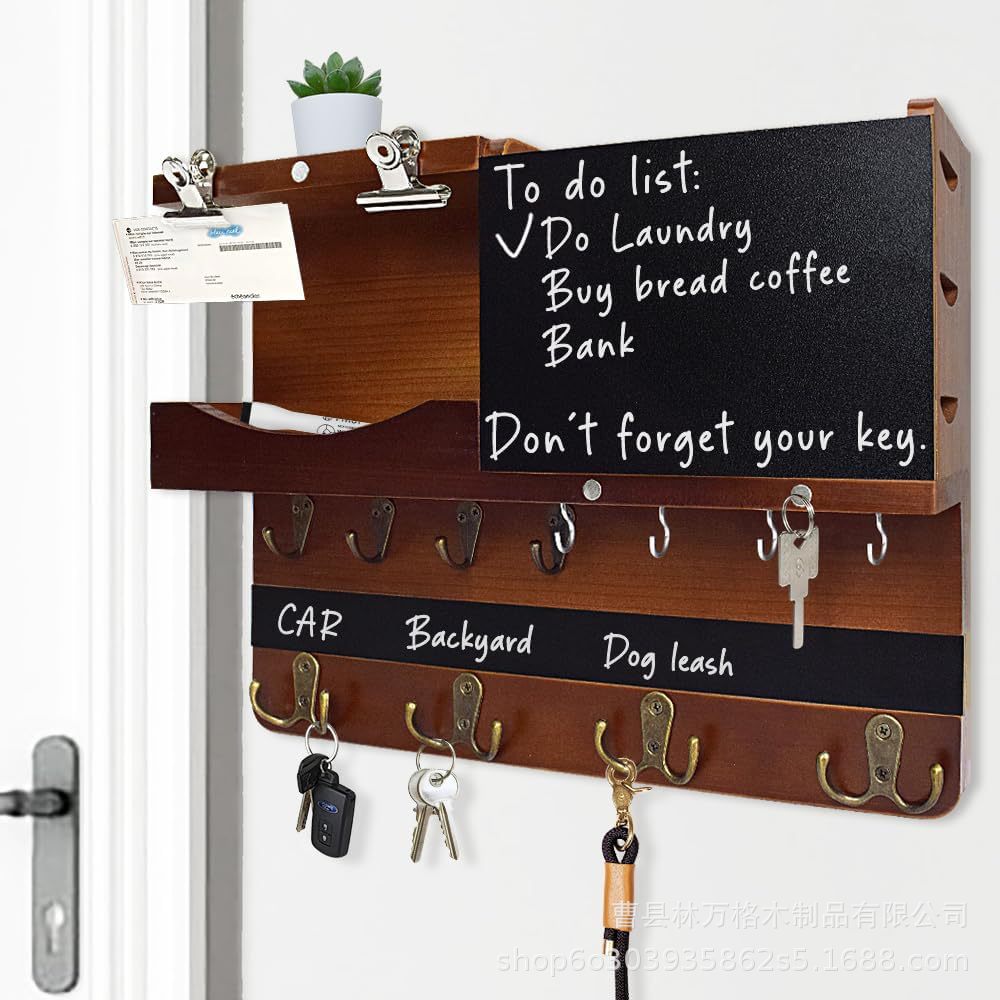 To do list:
✓Do Laundry
Buy bread coffee
Bank
Don't forget your key.
CAR
Backyard
Dog leash
Ford
曹县林万格木制品有限公司
shop6o303935862s5.1688.com